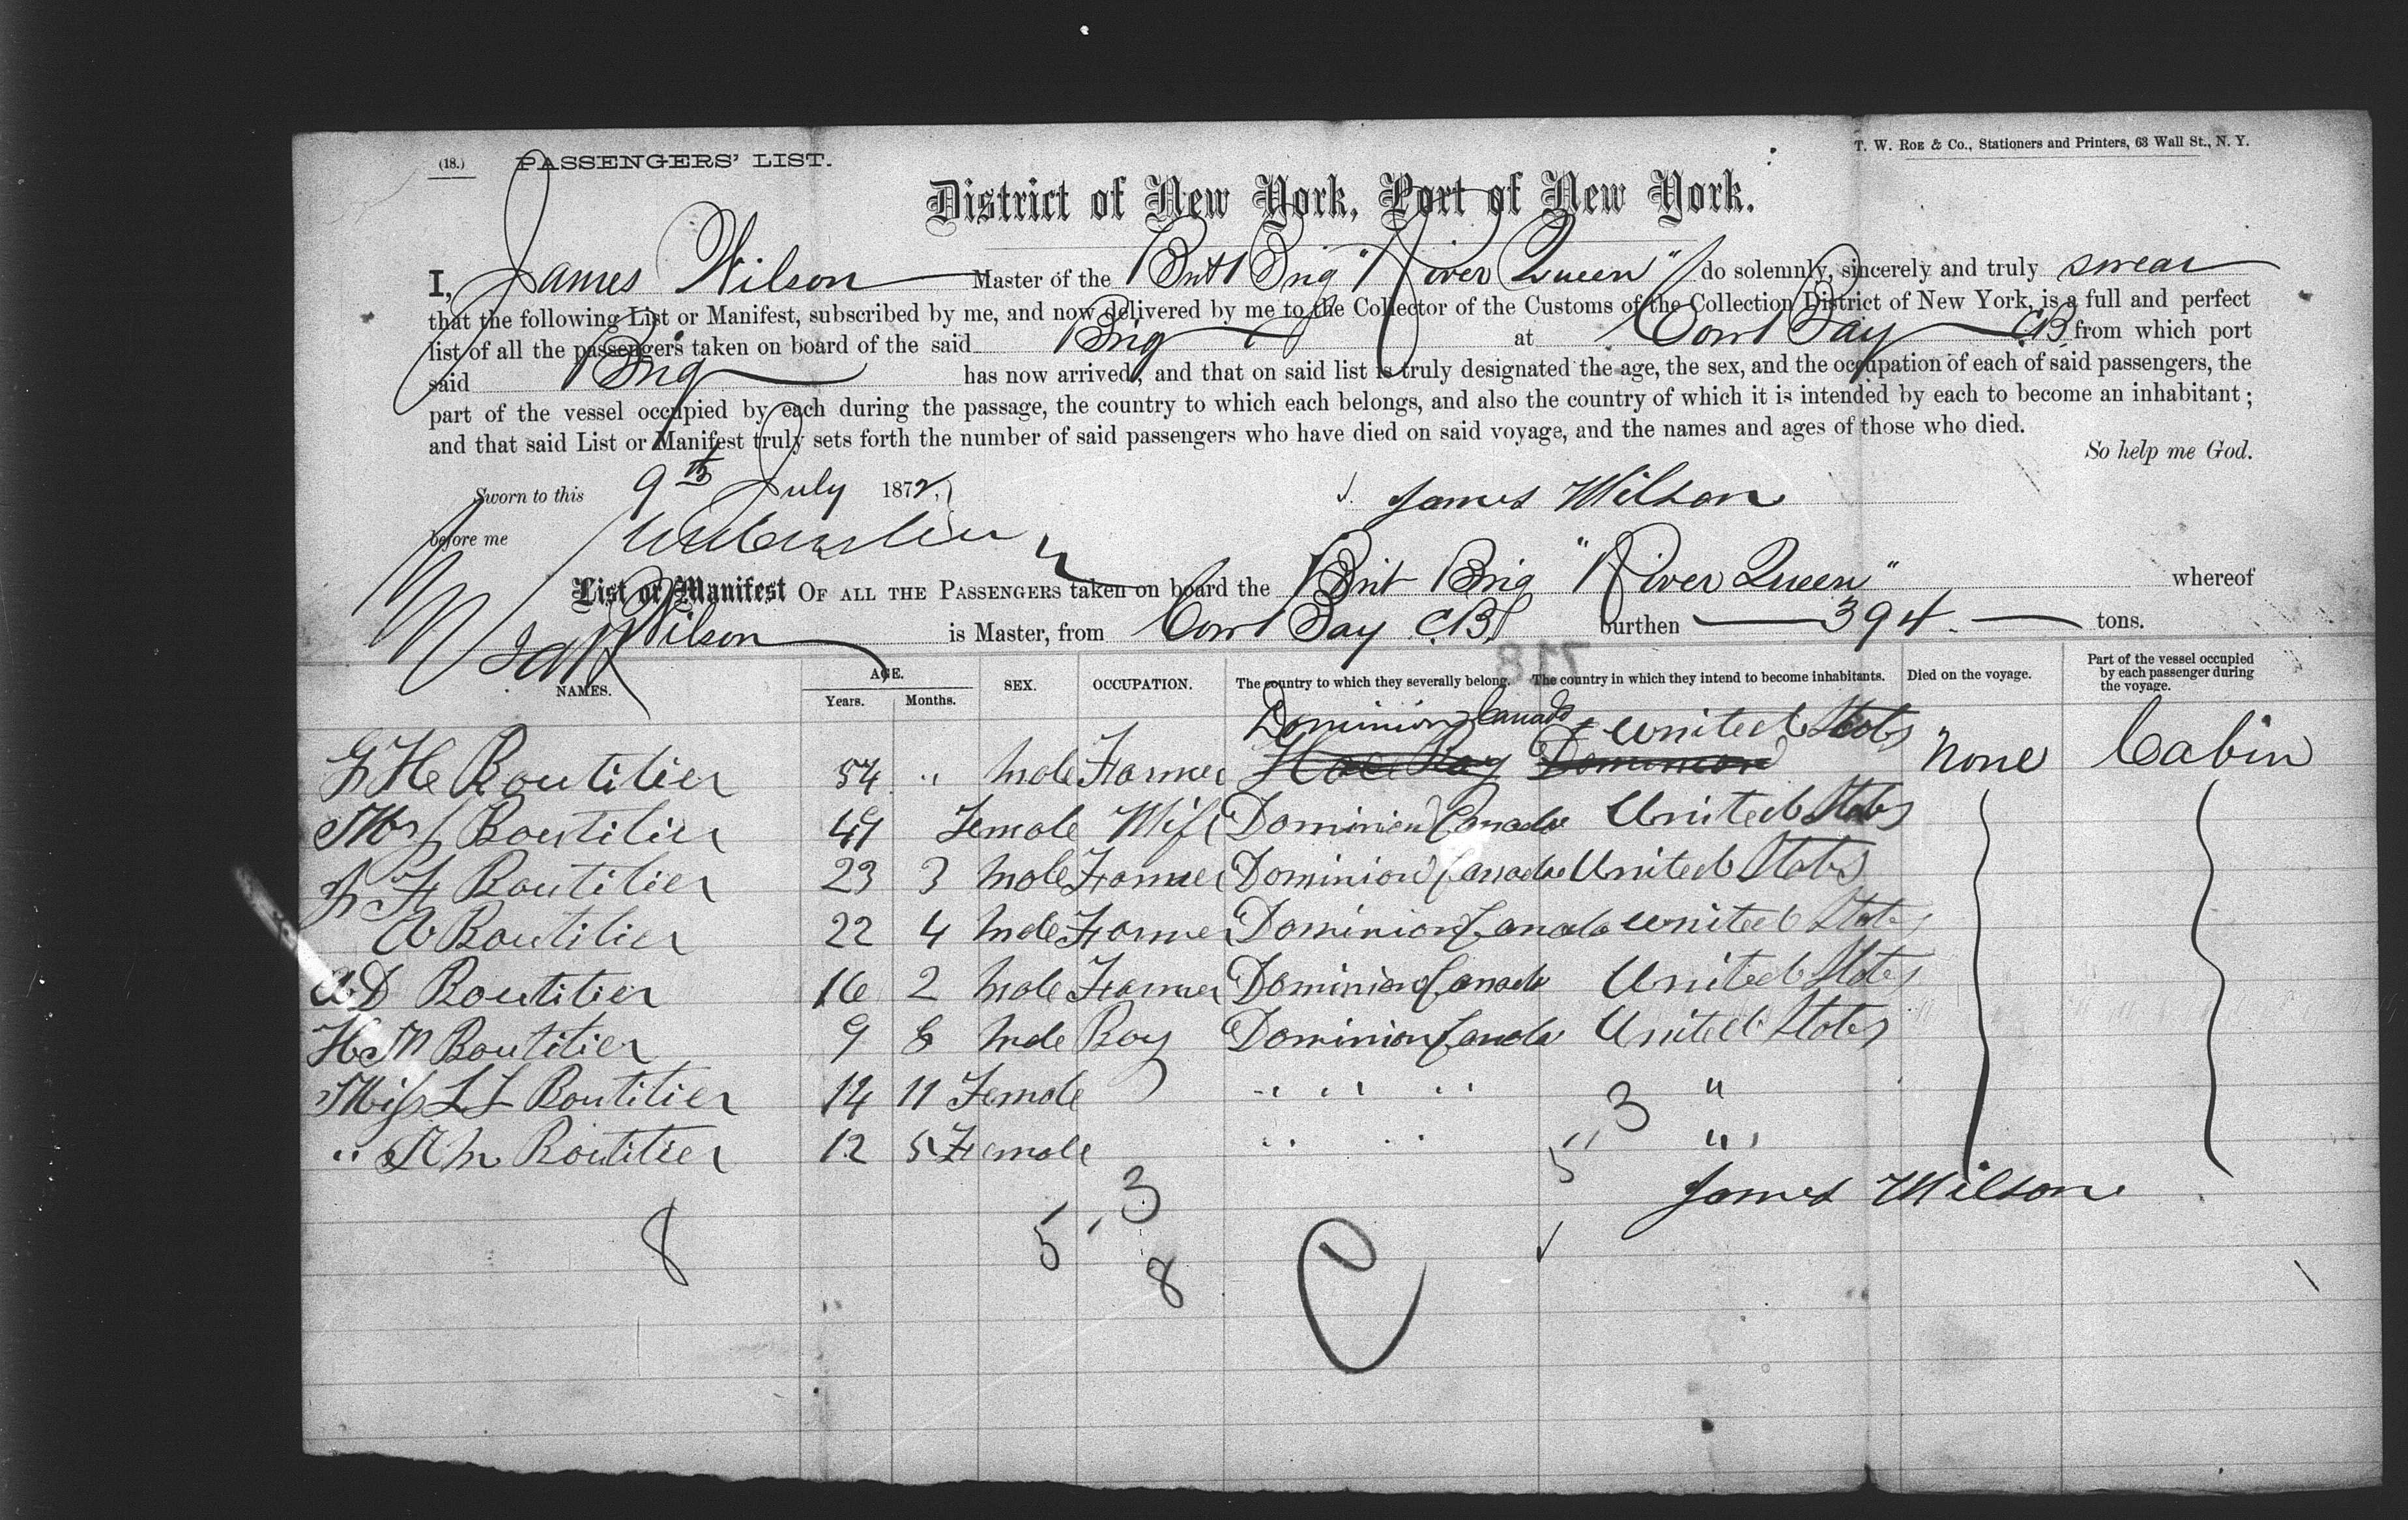 (18.) PASSENGERS' LIST.
T. W. ROE & Co., Stationers and Printers, 63 Wall St., N. Y.
District of New York, Port of New York.
I, James Wilson Master of the Brit Brig "River Queen" do solemnly, sincerely and truly swear
that the following List or Manifest, subscribed by me, and now delivered by me to the Collector of the Customs of the Collection District of New York, is a full and perfect
list of all the passengers taken on board of the said Brig at Cow Bay C.B. from which port
said Brig has now arrived, and that on said list is truly designated the age, the sex, and the occupation of each of said passengers, the
part of the vessel occupied by each during the passage, the country to which each belongs, and also the country of which it is intended by each to become an inhabitant;
and that said List or Manifest truly sets forth the number of said passengers who have died on said voyage, and the names and ages of those who died.
So help me God.
Sworn to this 9th July 1872, James Wilson
before me
List or Manifest OF ALL THE PASSENGERS taken on board the Brit Brig "River Queen" whereof
Wilson is Master, from Cow Bay C.B. burthen 394 tons.
718
NAMES. AGE. Years. Months. SEX. OCCUPATION. The country to which they severally belong. The country in which they intend to become inhabitants. Died on the voyage. Part of the vessel occupied by each passenger during the voyage.
Dominion Canada United States
H Boutilier 54 " Male Farmer Dominion None Cabin
Mrs Boutilier 47 Female Wife Dominion Canada United States
F Boutilier 23 3 Male Farmer Dominion Canada United States
A Boutilier 22 4 Male Farmer Dominion Canada United States
A D Boutilier 16 2 Male Farmer Dominion Canada United States
H M Boutilier 9 8 Male Boy Dominion Canada United States
Miss L L Boutilier 14 11 Female " " " 3 "
" A M Boutilier 12 5 Female " " " 5 "
James Wilson
8 5, 3
8